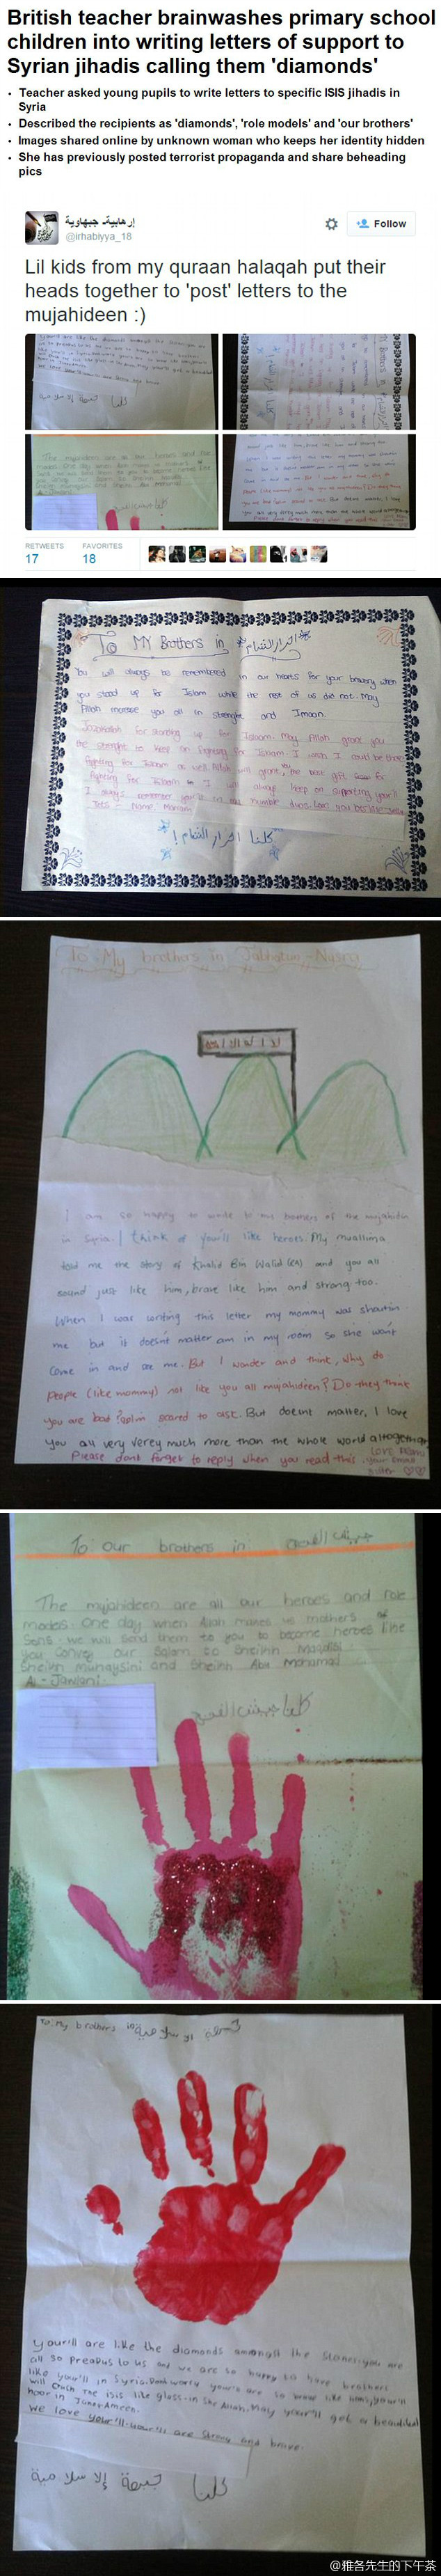 British teacher brainwashes primary school
children into writing letters of support to
Syrian jihadis calling them 'diamonds'
• Teacher asked young pupils to write letters to specific ISIS jihadis in
Syria
• Described the recipients as 'diamonds', 'role models' and 'our brothers'
• Images shared online by unknown woman who keeps her identity hidden
• She has previously posted terrorist propaganda and share beheading
pics
إرهابية- جبهاوية
@irhabiyya_18
Follow
Lil kids from my quraan halaqah put their
heads together to 'post' letters to the
mujahideen :)
RETWEETS
FAVORITES
17
18
To MY Brothers in احرار الشام
You will always be remembered in our hearts for your bravery when
you stood up for Islam while the rest of us did not. May
Allah increase you all in strenght and Imaan.
for standing up for Islaam. May Allah grant you
the strenght to keep on fighting for Islam. I wish I could be there
fighting for Islaam as well Allah will grant you the best gift for
fighting for Islam I will always keep on supporting you'll
I always remember you'll in my humble duas. Love you
Name: Mariam
كلنا احرار الشام!
To My brothers in Jabhatun-Nusra
I am so happy to write to my brothers of the mujahidin
in Syria. I think of you'll like heroes. My muallima
told me the story of Khalid Bin Walid (RA) and you all
sound just like him, brave like him and strong too.
When I was writing this letter my mommy was shoutin
me but it doesn't matter am in my room so she won't
come in and see me. But I wonder and think, why do
people (like mommy) not like you all mujahideen? Do they think
you are bad? scared to ask. But doesnt matter, I love
you all very verey much more than the whole world altogether
Please dont forget to reply when you read this. your
sister
To our brothers in جيش الفتح
The mujahideen are all our heroes and role
models. One day when Allah makes us mothers of
Sons we will send them to you to become heroes like
you. Convey our Salam to Sheikh Maqdisi
Sheikh Muhaysini and Sheikh Abu Mohamad
Al-Jawlani.
كلنا جيش الفتح
To: My brothers in
you'll are like the diamonds amongst the stones. you are
all so to us and we are so happy to have brothers
like you'll in Syria. Dont worry
will crush the isis like glass in sha Allah. May you'll get a beautiful
hoor in Ameen.
we love you'll. you'll are strong and brave.
كلنا جبهة إلاسلامية
@雅各先生的下午茶